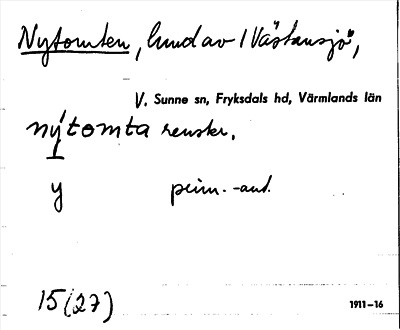 Nytomten, hmd av 1 Västansjö,
V. Sunne sn, Fryksdals hd, Värmlands län
nýtomta
y
15(27)
1911–16